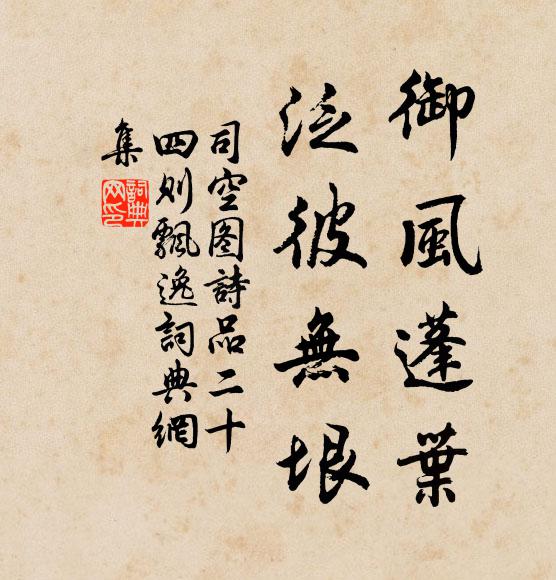 御風蓬葉
泛彼無垠
司空图詩品二十
四则飄逸詞典網
集
詞典
网印